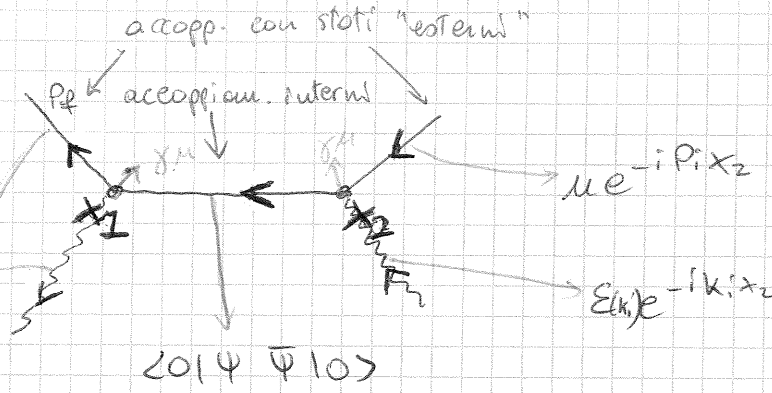 accopp. con stati "esterni"
Pf accoppiam. interni
γμ γμ
u e^{-i Pi x2}
x1 x2
ε(ki) e^{-i ki x2}
<0|Ψ Ψ̄|0>